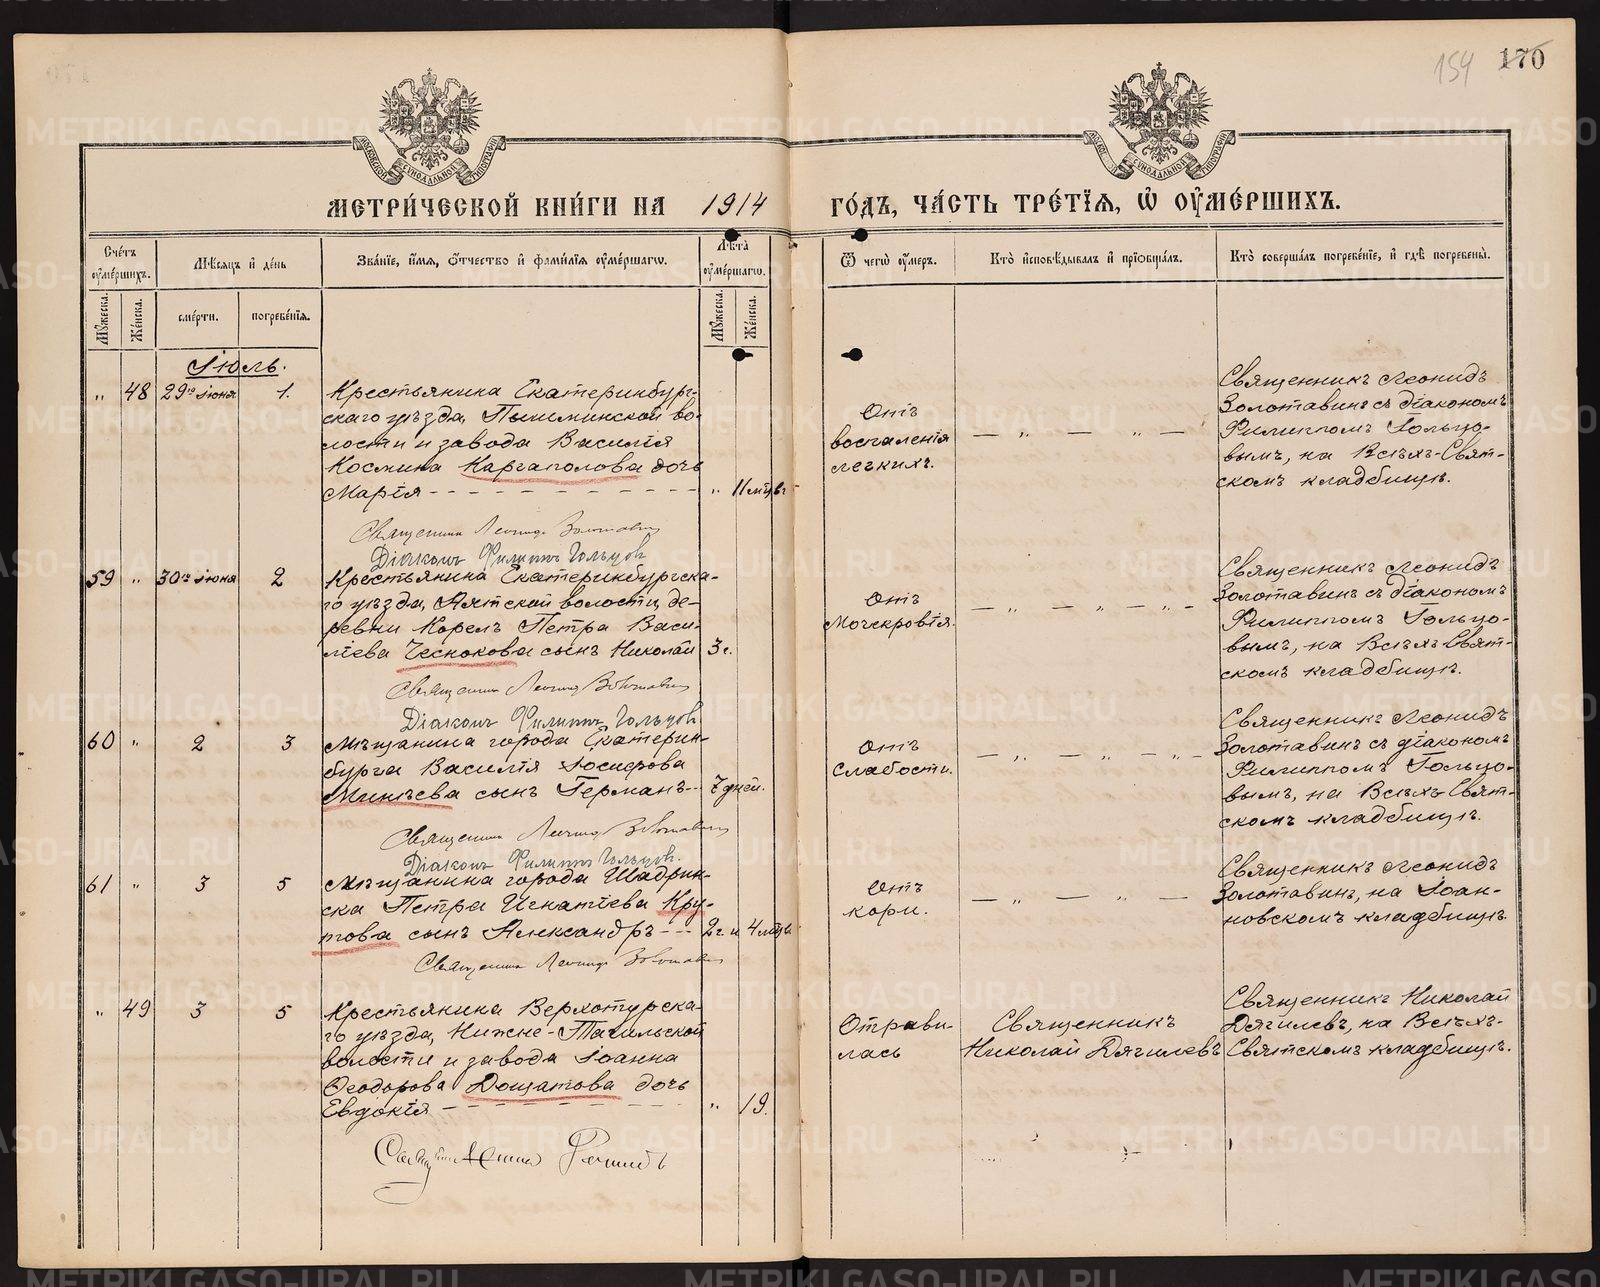 154 170
МОСКОВСКОЙ СѴНОДАЛЬНОЙ ТИПОГРАФІИ
МЕТРИ́ЧЕСКОЙ КНИ́ГИ НА 1914 ГО́ДЪ, ЧА́СТЬ ТРЕ́ТІѦ, Ѡ ОУ҆МЕ́РШИХЪ.
Сче́тъ оу҆ме́ршихъ.
Мѣ́сяцъ и҆ де́нь
Зва́нїе, и҆́мя, ѻ҆́тчество и҆ фами́лїя оу҆ме́ршагѡ.
Лѣ́та оу҆ме́ршагѡ.
Ѿ чегѡ̀ оу҆́меръ.
Кто̀ и҆сповѣ́дывалъ и҆ прїобща́лъ.
Кто̀ соверша́лъ погребе́нїе, и҆ гдѣ̀ погребены̀.
Мꙋ́жеска.
Же́нска.
сме́рти.
погребе́нїя.
Мꙋ́жеска.
Же́нска.
Іюль.
„ 48 29го іюня 1.
Крестьянина Екатеринбург-
скаго уѣзда, Пышминской во-
лости и завода Василія
Космина Каргаполова дочь
Марія - - - - - - - „ 11 мцвъ
Отъ
воспаленія
легкихъ.
— „ — „ —
Священникъ Леонидъ
Золотавинъ съ діакономъ
Филиппомъ Гольцо-
вымъ, на Всѣхъ-Свят-
скомъ кладбищѣ.
Священникъ Леонидъ Золотавинъ
Діаконъ Филиппъ Гольцовъ
59 „ 30го іюня 2
Крестьянина Екатеринбургска-
го уѣзда, Аятской волости, де-
ревни Корелъ Петра Васи-
ліева Чеснокова сынъ Николай 3 г.
Отъ
Мочекровія.
— „ — „ — „ —
Священникъ Леонидъ
Золотавинъ съ діакономъ
Филиппомъ Гольцо-
вымъ, на Всѣхъ-Свят-
скомъ кладбищѣ.
Священникъ Леонидъ Золотавинъ
Діаконъ Филиппъ Гольцовъ
60 „ 2 3
Мѣщанина города Екатерин-
бурга Василія Іосифова
Минѣева сынъ Германъ-- 7 дней.
Отъ
Слабости.
— „ — „ — „ —
Священникъ Леонидъ
Золотавинъ съ діакономъ
Филиппомъ Гольцо-
вымъ, на Всѣхъ-Свят-
скомъ кладбищѣ.
Священникъ Леонидъ Золотавинъ
Діаконъ Филиппъ Гольцовъ.
61 „ 3 5
Мѣщанина города Шадрин-
ска Петра Игнатіева Кру-
това сынъ Александръ--- 2 г. и 4 мцвъ
Отъ
кори.
— „ — „ —
Священникъ Леонидъ
Золотавинъ, на Іоан-
новскомъ кладбищѣ.
Священникъ Леонидъ Золотавинъ
„ 49 3 5
Крестьянина Верхотурска-
го уѣзда, Нижне-Тагильской
волости и завода Іоанна
Ѳеодорова Дощатова дочь
Евдокія - - - - - - - „ 19.
Отрави-
лась
Священникъ
Николай Дягилевъ
Священникъ Николай
Дягилевъ, на Всѣхъ-
Святскомъ кладбищѣ.
METRIKI.GASO-URAL.RU